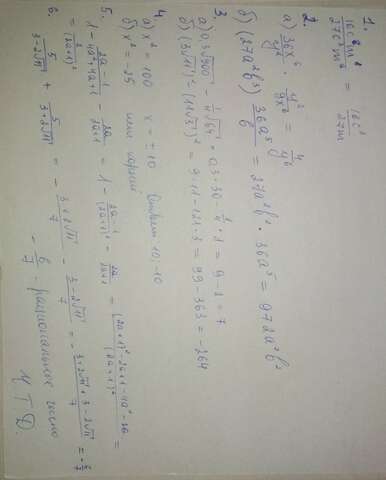 1.
16c⁸ / 27c²m = 16c⁶ / 27m
2.
а) 36x⁶ / y⁸ · y² / 9x⁶ = 4 / y⁶
б) (27a²b³) 36a⁵ / b = 27a²b² · 36a⁵ = 972a⁷b²
3.
а) 0,3√900 - 1/4 √64 = 0,3·30 - 1/4 · 8 = 9 - 2 = 7
б) (3√11)² - (11√3)² = 9·11 - 121·3 = 99 - 363 = -264
4.
а) x² = 100 x = ±10 Ответ 10; -10
б) x² = -25 нет корней
5.
1 - (2a-1) / (4a²+4a+1) - 2a / (2a+1) = 1 - (2a-1) / (2a+1)² - 2a / (2a+1) = ((2a+1)² - 2a+1 - 4a² - 2a) / (2a+1)² =
= 2 / (2a+1)²
6.
5 / (3-2√11) + 5 / (3+2√11) = - (3+2√11) / 7 - (3-2√11) / 7 = - (3+2√11+3-2√11) / 7 = - 6/7
- 6/7 - рациональное число
Ч Т Д.